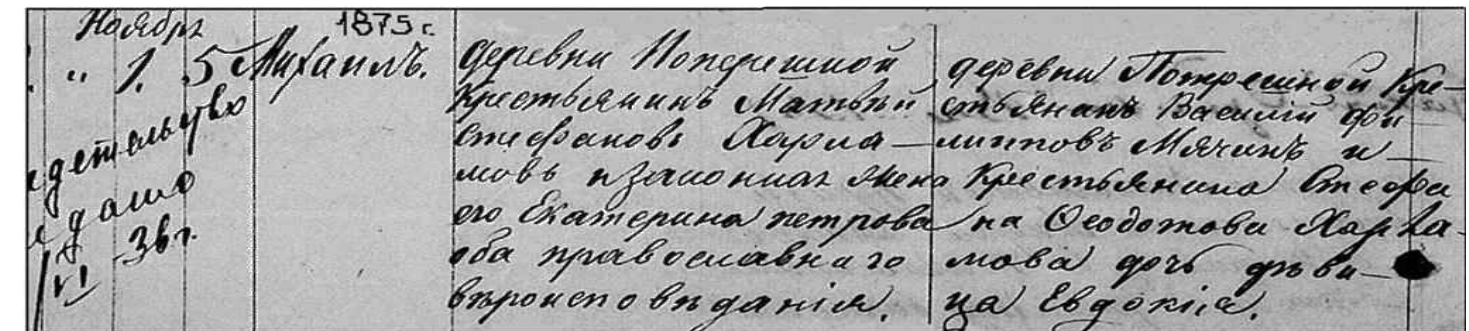 Ноября 1875 г.
" 1. 5 Михаилъ.
детельство
дано
VI 36 г.
деревни Поперешной
крестьянинъ Матвѣй
Стефановъ Харла-
мовъ и законная жена
его Екатерина петрова
оба православнаго
вѣроисповѣданія.
деревни Попрешной кре-
стьянинъ Василій Фи-
липповъ Мячинъ и
крестьянина Стефа
на Ѳеодотова Харла-
мова дочь дѣви-
ца Евдокія.